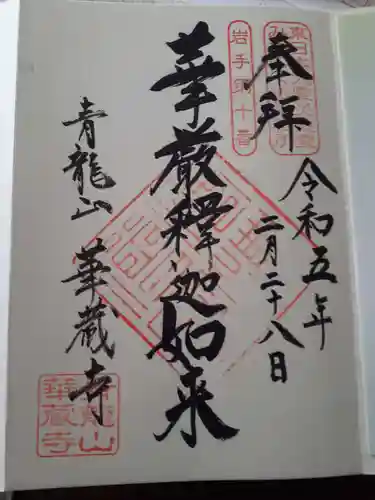 奉拝
岩手県十番
令和五年
二月二十八日
華厳釋迦如来
青龍山
華蔵寺
青龍山
華蔵寺